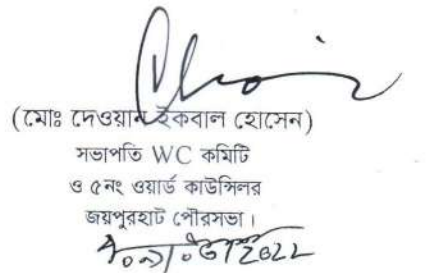 (মোঃ দেওয়ান ইকবাল হোসেন)
সভাপতি WC কমিটি
ও ৫নং ওয়ার্ড কাউন্সিলর
জয়পুরহাট পৌরসভা।